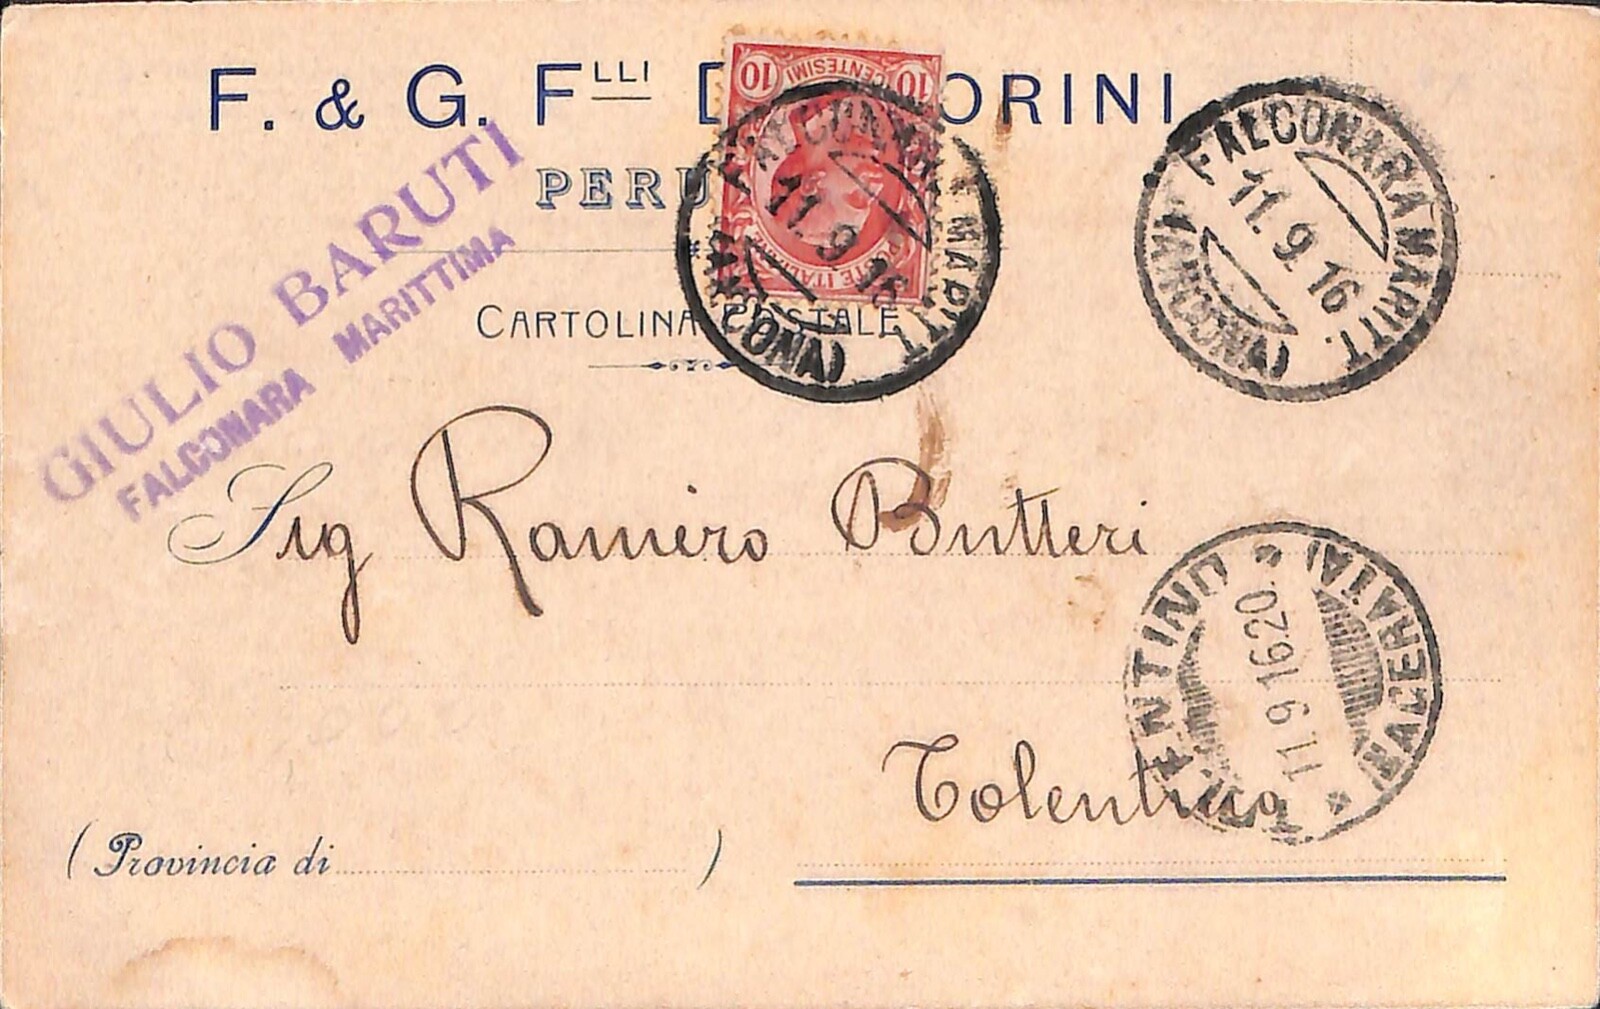 F. & G. FLLI D ORINI
PERU
CARTOLINA POSTALE
GIULIO BARUTI
FALCONARA MARITTIMA
10 CENTESIMI 10
POSTE ITALIANE
FALCONARA MARITT.
11.9.16
(ANCONA)
FALCONARA MARITT.
11.9.16
(ANCONA)
Sig Raniero Butteri
TOLENTINO * (MACERATA) *
11.9 16.20
Tolentino
(Provincia di )